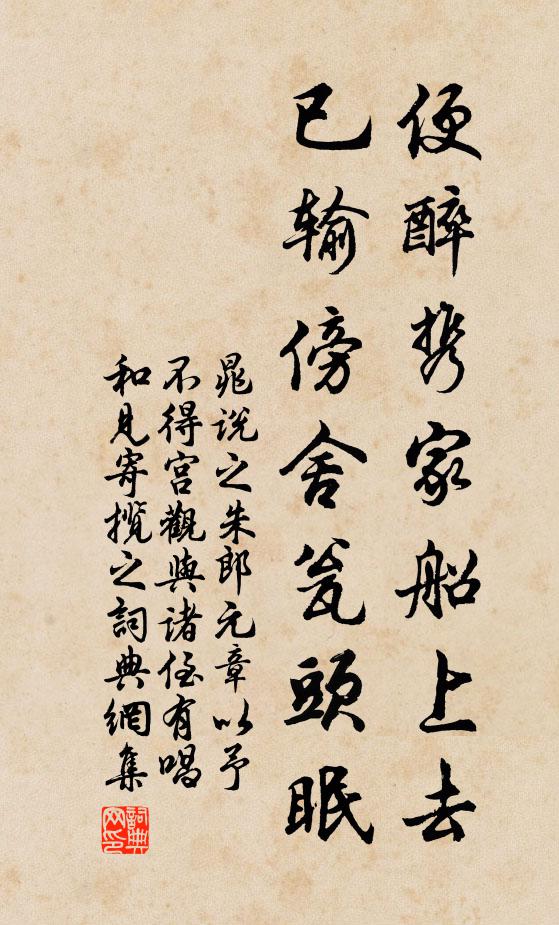 便醉携家船上去
已输傍舍瓮頭眠
晁说之朱郎元章以予
不得宫觀與诸侄有唱
和見寄攬之詞典網集
詞典网印